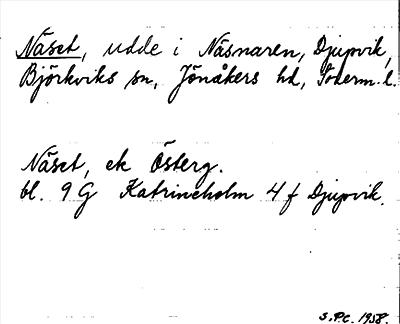 Näset, udde i Näsnaren, Djupvik,
Björkviks sn, Jönåkers hd, Söderm. l.
Näset, ek Österg.
bl. 9 G Katrineholm 4 f Djupvik.
S.P.C. 1958.